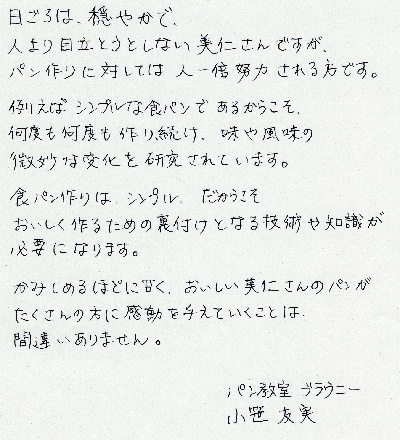 日ごろは、穏やかで、
人より目立とうとしない美仁さんですが、
パン作りに対しては人一倍努力される方です。
例えばシンプルな食パンであるからこそ、
何度も何度も作り続け、味や風味の
微妙な変化を研究されています。
食パン作りは、シンプル、だからこそ
おいしく作るための裏付けとなる技術や知識が
必要になります。
かみしめるほどに甘く、おいしい美仁さんのパンが
たくさんの方に感動を与えていくことは、
間違いありません。
パン教室 ブラウニー
小笹 友実